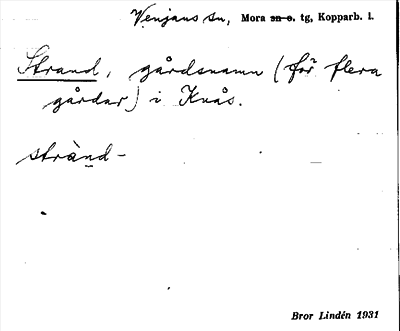 Venjans sn, Mora sn o. tg, Kopparb. l.
Strand, gårdsnamn (för flera
gårdar) i Knås.
strànd-
Bror Lindén 1931